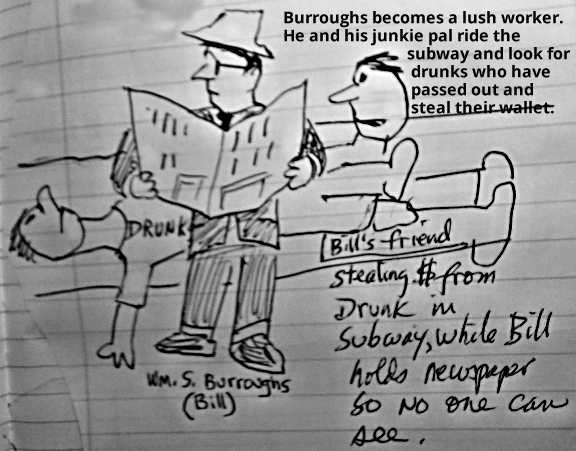 Burroughs becomes a lush worker.
He and his junkie pal ride the
subway and look for
drunks who have
passed out and
steal their wallet.
DRUNK
Wm. S. Burroughs
(Bill)
Bill's friend
stealing $ from
Drunk in
Subway, while Bill
holds newspaper
so no one can
see.